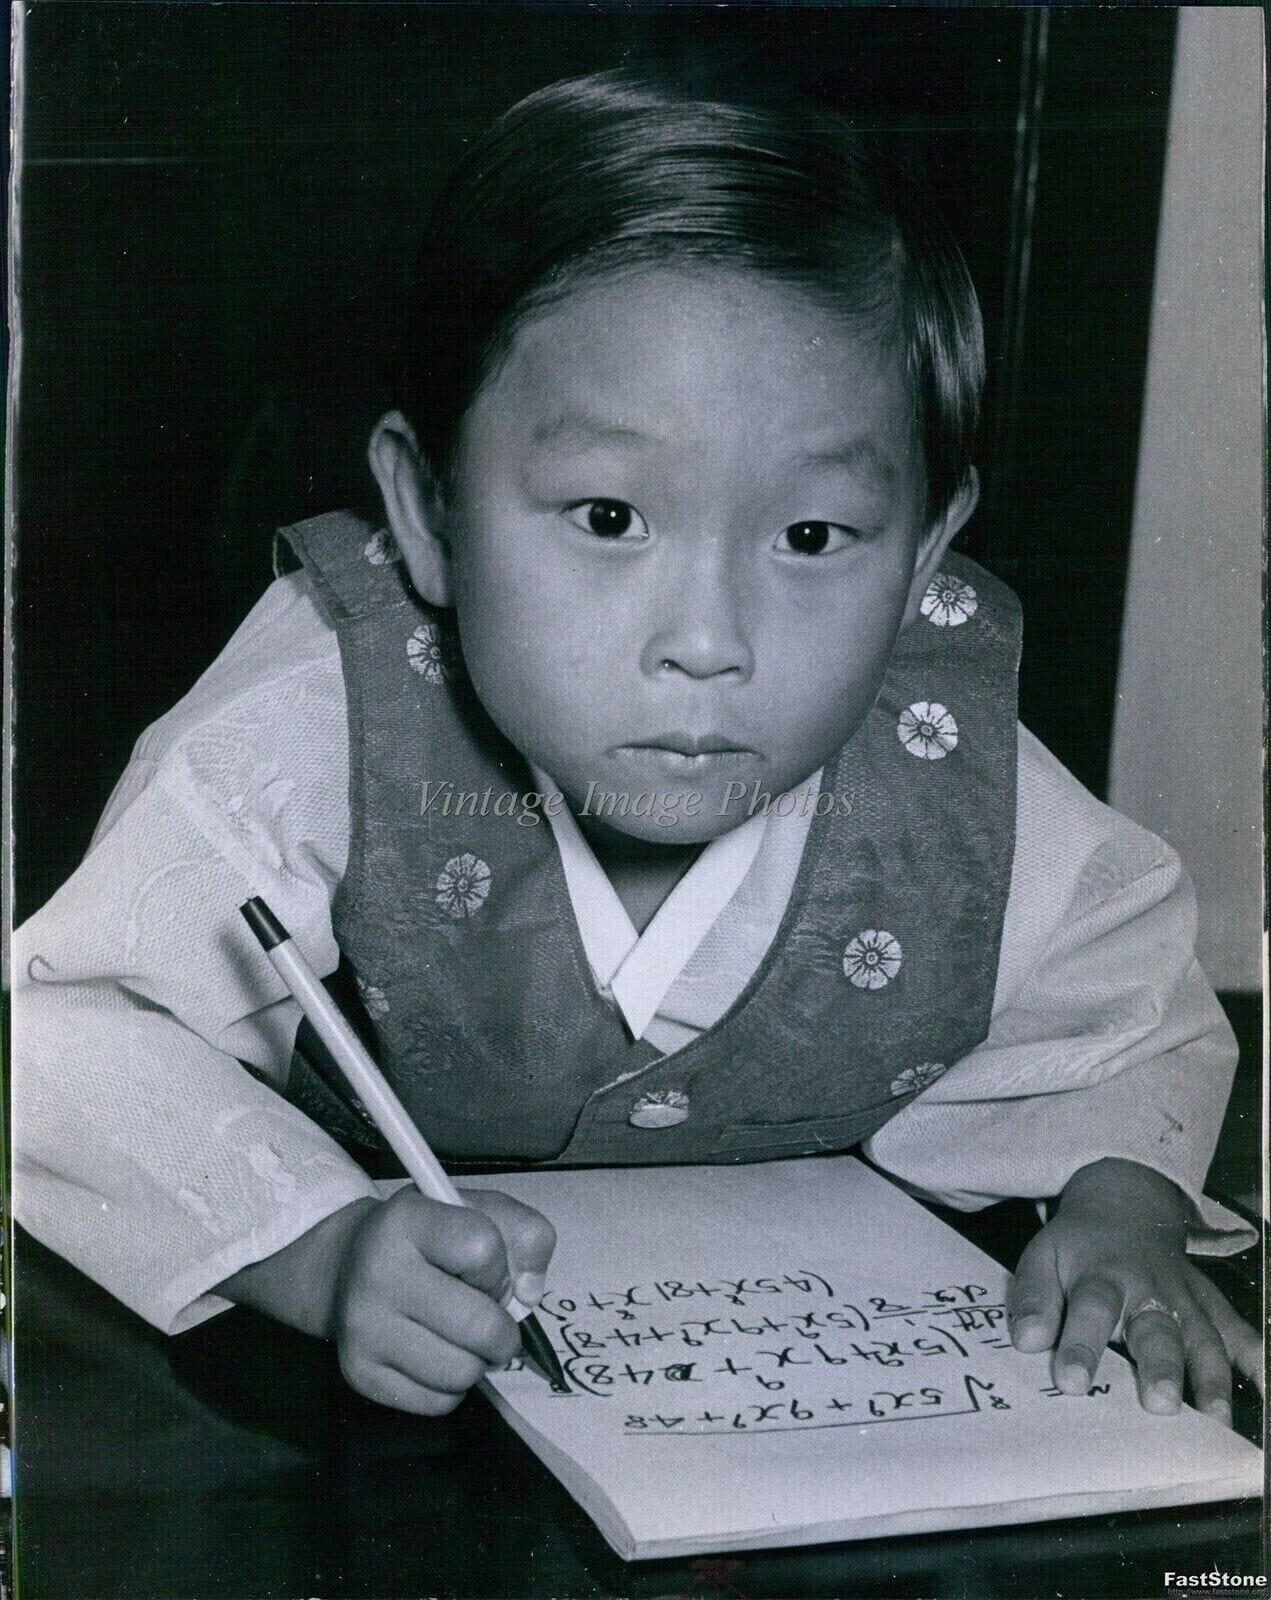 Vintage Image Photos
= ⁸√5x⁹+9x⁹+48
= (5x⁹+9x⁹+48)
dy/dx = 1/8 (5x⁹+9x⁹+48)
(45x⁸+81x⁸+0)
FastStone
http://www.faststone.org